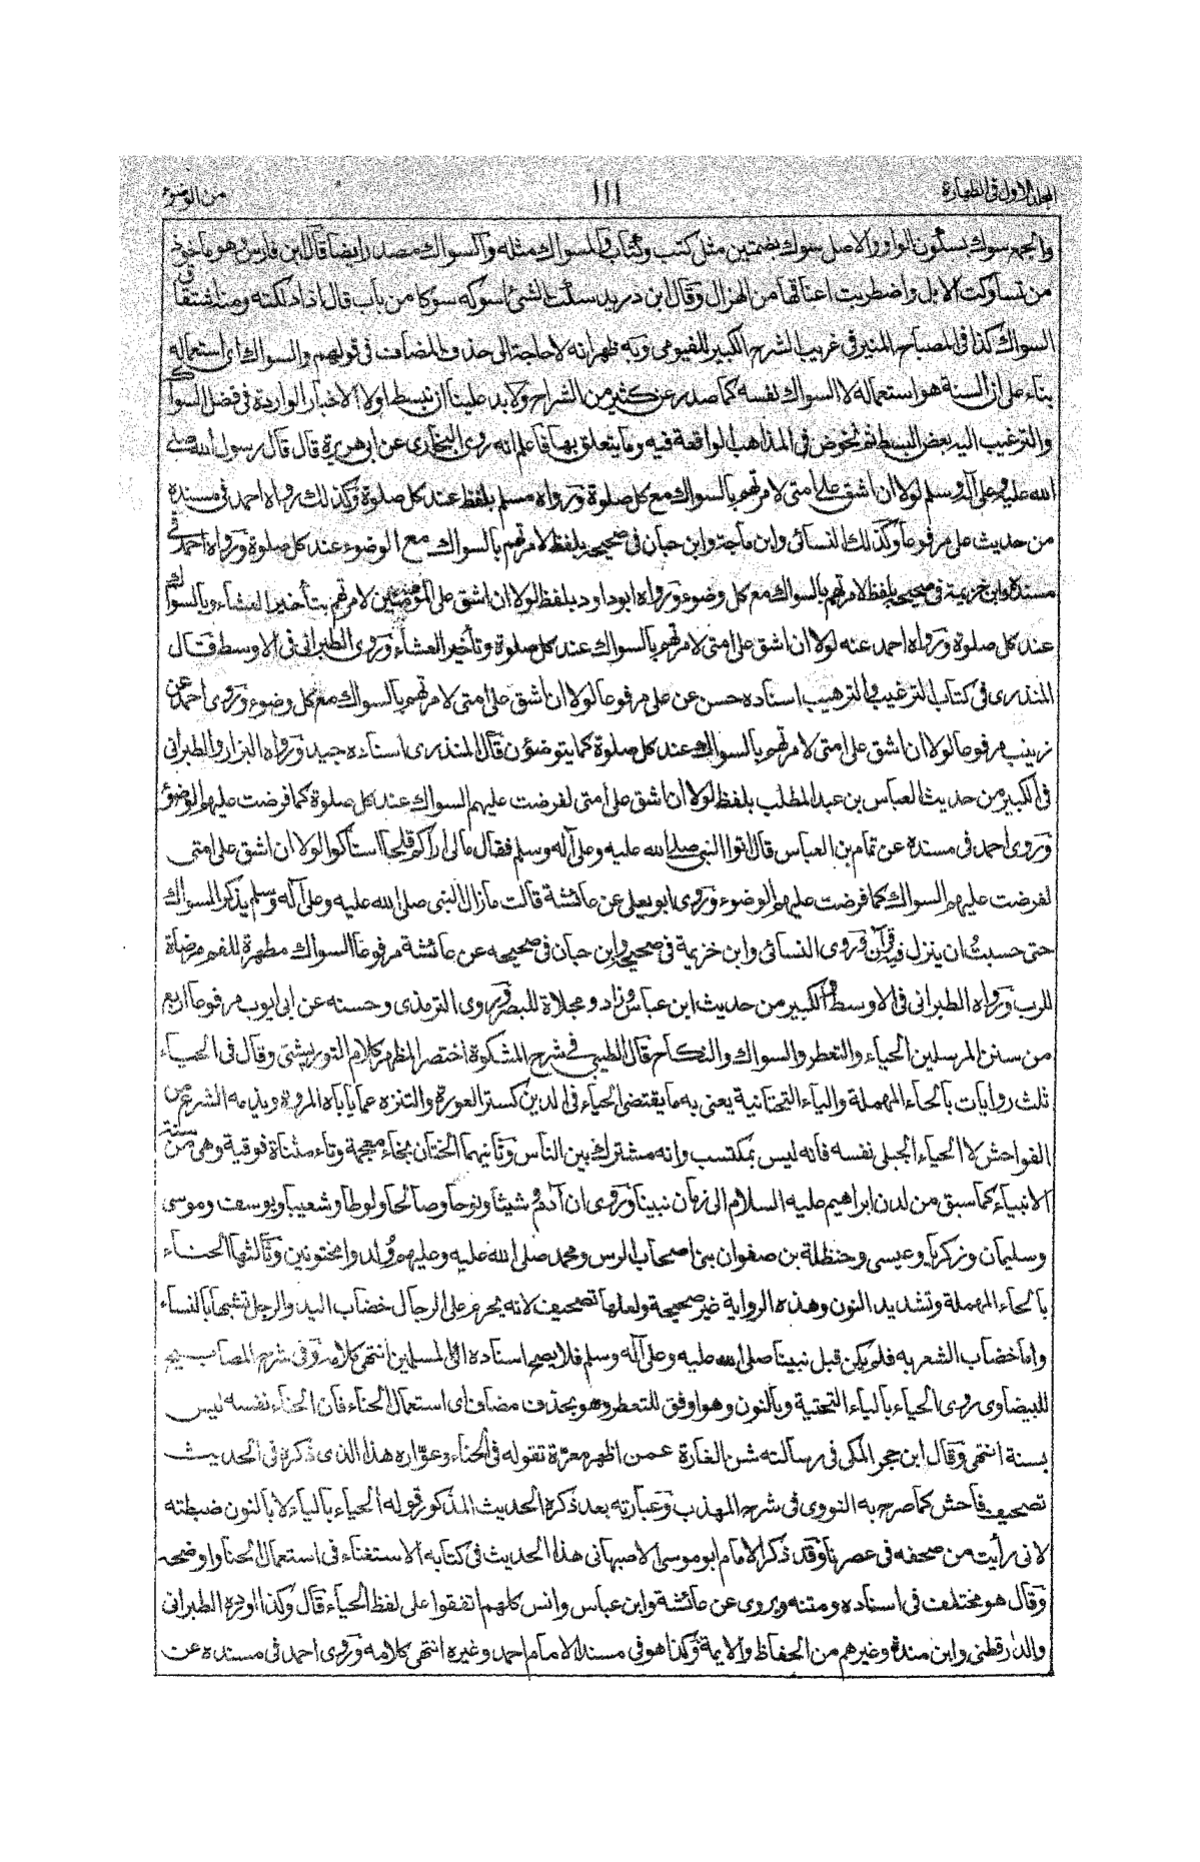 المجلد الاول فى الطهارة
١١١
من الوضوء
والجمع سوك بسكون الواو والاصل سوك بضمتين مثل كتب وكتاب والمسواك مثله والسواك مصدر ايضا قال ابن فارس وهو ماخوذ
من تساوكت الابل واضطربت اعناقها من الهزال وقال ابن دريد سكت الشئ اسوكه سوكا من باب قال اذا دلكته ومنه اشتقاق
السواك كذا فى المصباح المنير فى غريب الشرح الكبير للفيومى وبه ظهر انه لا حاجة الى حذف المضاف فى قولهم والسواك اى استعماله
بناء على ان السنة هو استعماله لا السواك نفسه كما صدر عن كثير من الشراح ولا بد علينا ان نبسط اولا الاخبار الواردة فى فضل السواك
والترغيب اليه بعض البسط ثم نخوض فى المذاهب الواقعة فيه وما يتعلق بها فاعلم انه روى البخارى عن ابى هريرة قال قال رسول الله صلى
الله عليه وعلى آله وسلم لولا ان اشق على امتى لامرتهم بالسواك مع كل صلوة ورواه مسلم بلفظ عند كل صلوة وكذلك رواه احمد فى مسنده
من حديث على مرفوعا وكذلك النسائى وابن ماجة وابن حبان فى صحيحه بلفظ لامرتهم بالسواك مع الوضوء عند كل صلوة ورواه احمد فى
مسنده وابن خزيمة فى صحيحه بلفظ لامرتهم بالسواك مع كل وضوء ورواه ابو داود بلفظ لولا ان اشق على المؤمنين لامرتهم بتأخير العشاء وبالسواك
عند كل صلوة ورواه احمد عنه لولا ان اشق على امتى لامرتهم بالسواك عند كل صلوة وتأخير العشاء وروى الطبرانى فى الاوسط قال
المنذرى فى كتاب الترغيب والترهيب اسناده حسن عن على مرفوعا لولا ان اشق على امتى لامرتهم بالسواك مع كل وضوء وروى احمد عن
زينب مرفوعا لولا ان اشق على امتى لامرتهم بالسواك عند كل صلوة كما يتوضؤن قال المنذرى اسناده جيد ورواه البزار والطبرانى
فى الكبير من حديث العباس بن عبد المطلب بلفظ لولا ان اشق على امتى لفرضت عليهم السواك عند كل صلوة كما فرضت عليهم الوضوء
وروى احمد فى مسنده عن تمام بن العباس قال اتوا النبى صلى الله عليه وعلى آله وسلم فقال مالى اراكم قلحا استاكوا لولا ان اشق على امتى
لفرضت عليهم السواك كما فرضت عليهم الوضوء وروى ابو يعلى عن عائشة قالت ما زال النبى صلى الله عليه وعلى آله وسلم يذكر السواك
حتى حسبت ان ينزل فيه قرآن وروى النسائى وابن خزيمة فى صحيحه وابن حبان فى صحيحه عن عائشة مرفوعا السواك مطهرة للفم مرضاة
للرب ورواه الطبرانى فى الاوسط والكبير من حديث ابن عباس وزاد ومجلاة للبصر وروى الترمذى وحسنه عن ابى ايوب مرفوعا اربع
من سنن المرسلين الحياء والتعطر والسواك والنكاح قال الطيبى فى شرح المشكوة اختصر المظهر كلام التوربشتى وقال فى الحياء
ثلث روايات بالحاء المهملة والياء التحتانية يعنى به ما يقتضى الحياء فى الدين كستر العورة والتنزه عما ياباه المروة ويذمه الشرع من
الفواحش لا الحياء الجبلى نفسه فانه ليس بمكتسب وانه مشترك بين الناس وثانيهما الختان بخاء معجمة وتاء مثناة فوقية وهى من سنة
الانبياء كما سبق من لدن ابراهيم عليه السلام الى زمان نبينا وروى ان آدم وشيثا ونوحا وصالحا ولوطا وشعيبا ويوسف وموسى
وسليمان وزكريا وعيسى وحنظلة بن صفوان نبى اصحاب الرس ومحمد صلى الله عليه وعليهم ولدوا مختونين وثالثها الحناء
بالحاء المهملة وتشديد النون وهذه الرواية غير صحيحة ولعلها تصحيف لانه يحرم على الرجال خضاب اليد والرجل تشبها بالنساء
واما خضاب الشعر به فلم يكن قبل نبينا صلى الله عليه وعلى آله وسلم فلا يصح اسناده الى المسلمين انتهى كلامه وفى شرح المصابيح
للبيضاوى روى الحياء بالياء التحتية وبالنون وهو اوفق للتعطر وهو بحذف مضاف اى استعمال الحناء فان الحناء نفسه ليس
بسنة انتهى وقال ابن حجر المكى فى رسالته شن الغارة عمن اظهر معرة تقوله فى الحناء وعواره هذا الذى ذكره فى الحديث
تصحيف فاحش كما صرح به النووى فى شرح المهذب وعبارته بعد ذكره الحديث المذكور قوله الحياء بالياء لا بالنون ضبطته
لانى رأيت من صحفه فى عصرنا وقد ذكر الامام ابو موسى الاصبهانى هذا الحديث فى كتابه الاستغناء فى استعمال الحنا واوضحه
وقال هو مختلف فى اسناده ومتنه ويروى عن عائشة وابن عباس وانس كلهم اتفقوا على لفظ الحياء قال وكذا اورده الطبرانى
والدارقطنى وابن مندة وغيرهم من الحفاظ والايمة وكذا هو فى مسند الامام احمد وغيره انتهى كلامه وروى احمد فى مسنده عن